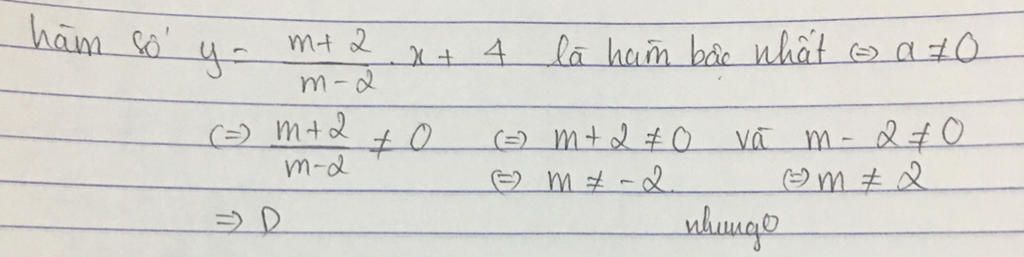 hàm số y = \frac{m+2}{m-2} . x + 4 là hàm bậc nhất ⇔ a ≠ 0
⇔ \frac{m+2}{m-2} ≠ 0 ⇔ m + 2 ≠ 0 và m - 2 ≠ 0
⇔ m ≠ -2. ⇔ m ≠ 2
⇒ D nhungo